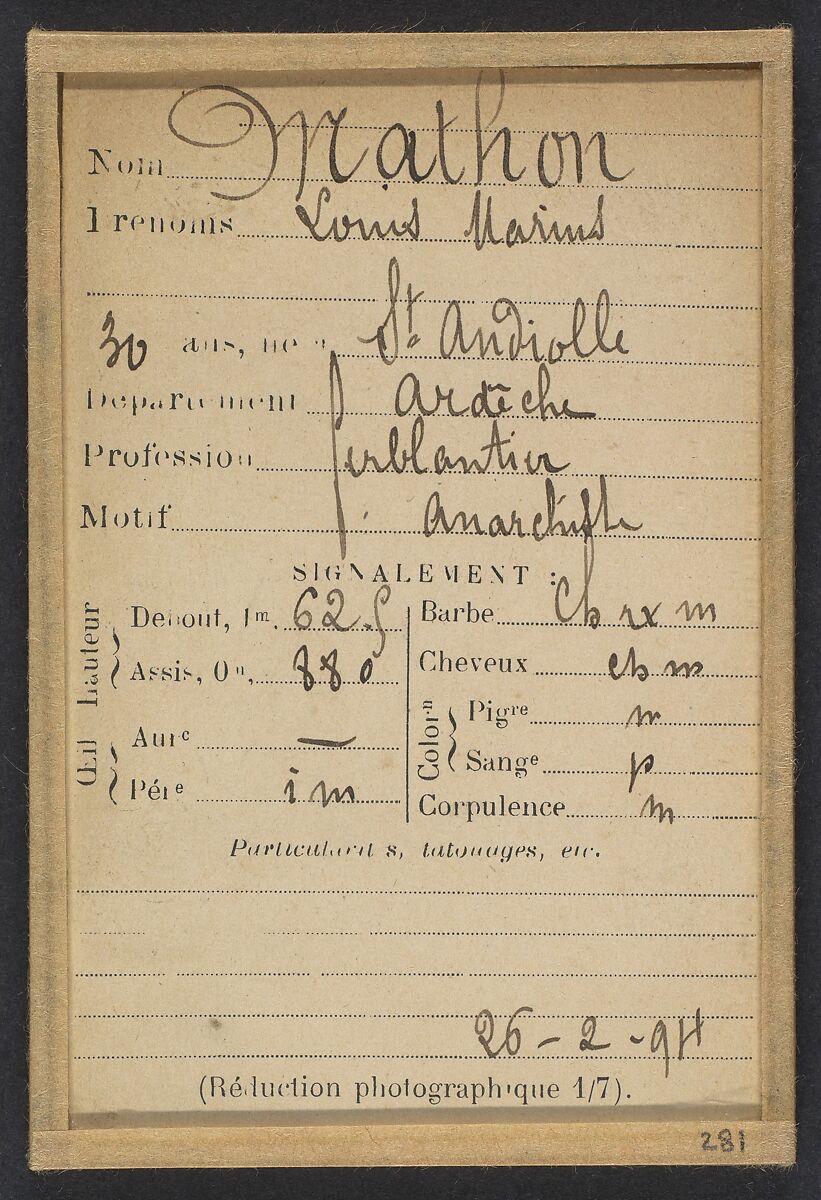 Nom Mathon
Prenoms Louis Marius
30 ans, né à St. Andiolle
Département Ardêche
Profession ferblantier
Motif anarchiste
SIGNALEMENT :
Hauteur
Debout, 1m. 62.5
Assis, 0m, 88 0
Œil
Aure —
Pére i m
Barbe ch rx m
Cheveux ch m
Color.n
Pigre m
Sange p
Corpulence m
Particularités, tatouages, etc.
26 - 2 - 94
(Réduction photographique 1/7).
281